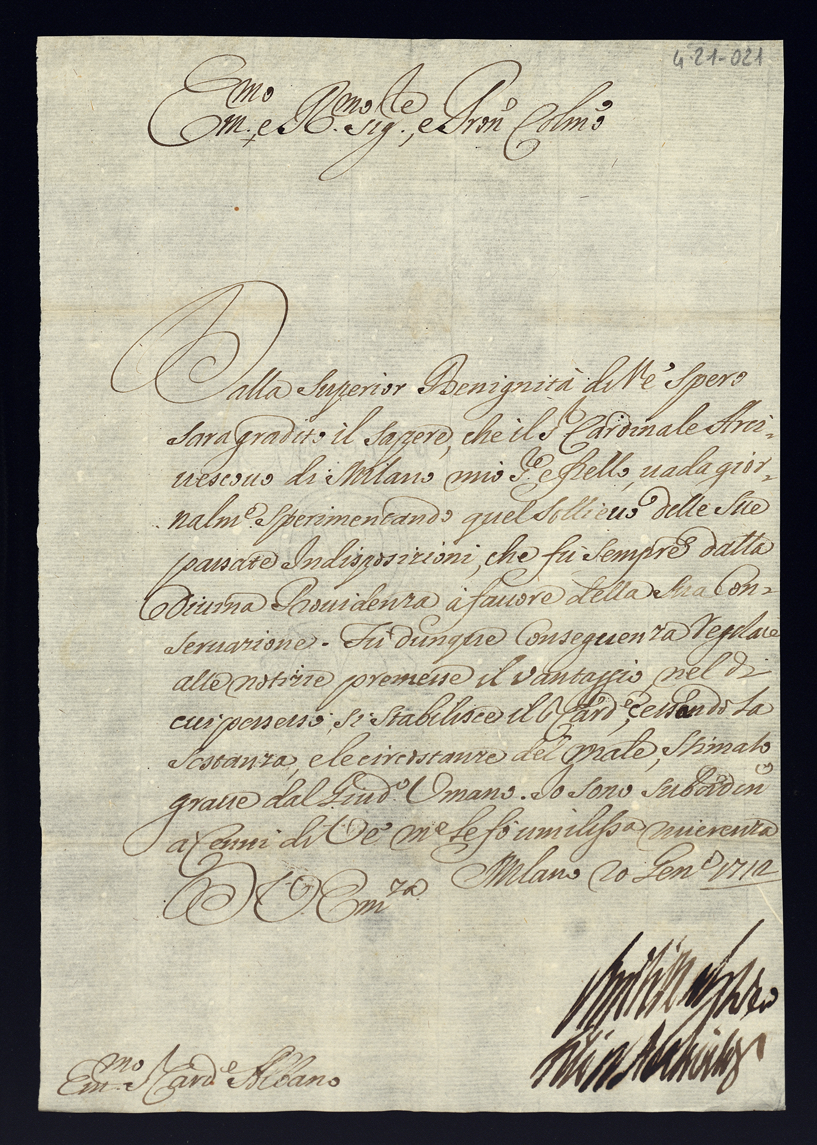 4-21-021
Emo Rmo
Em. e R. Sig.re, e Pron Colmo
Dalla Superior Benignità di V.E. Spero
sara gradito il sapere, che il S.r Cardinale Arci=
uescouo di Milano mio S.re e frello, uada gior=
nalm.e sperimentando quel sollieuo delle sue
passate Indisposizioni, che fù sempre dalla
Diuina Prouidenza à fauore della sua Con=
seruazione. Fu dunque Conseguenza
alle notizie premesse il vantaggio nel di
cui possesso, si stabilisce il S. Card.e, cessando la
sostanza, e le circostanze del male, stimato
graue dal Giud.o Umano. Io sono
a Cenni di V.E. me Le fò umiliss.a riuerenza
D. V. Em.za Milano 20 Gen.o 1712
Em.mo S. Card.e Albano